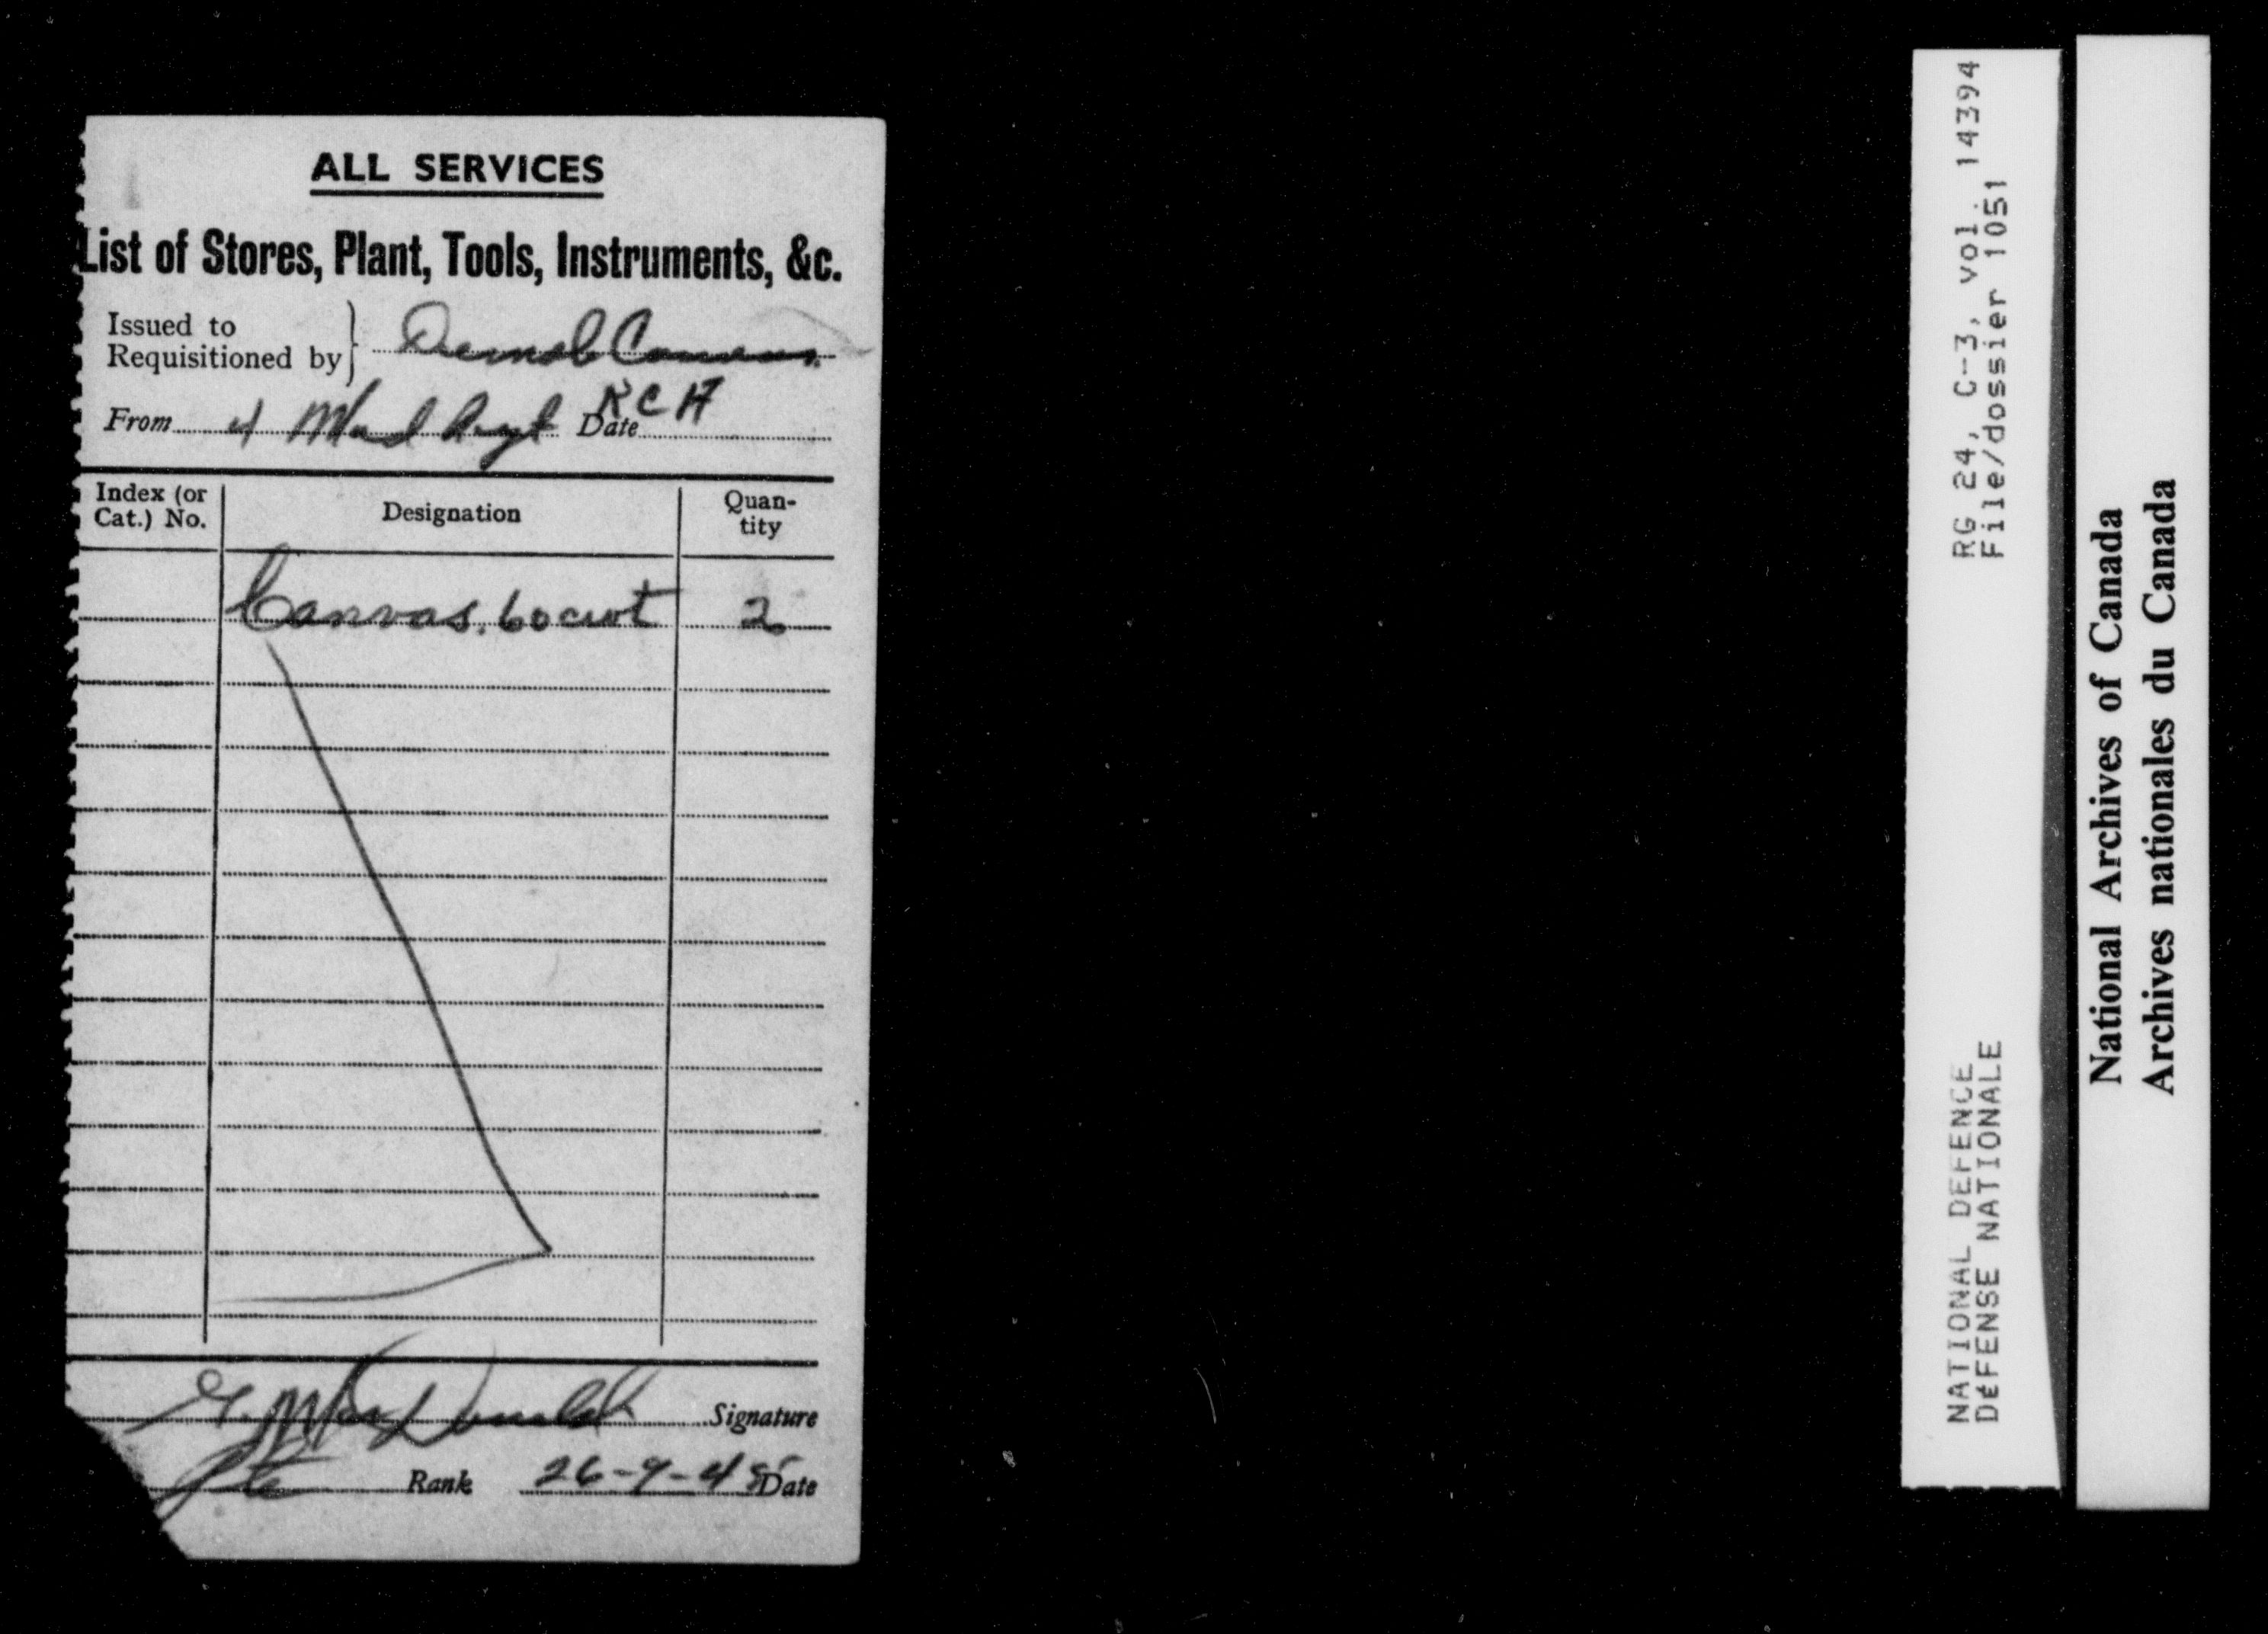 ALL SERVICES
List of Stores, Plant, Tools, Instruments, &c.
Issued to
Requisitioned by
From 4 Med Regt Date R C A
Index (or Cat.) No. Designation Quan-tity
Canvas. 60 cwt 2
G. MacDonald Signature
Pte Rank 26-9-45 Date
RG 24, C-3, vol. 14394
File/dossier 1051
NATIONAL DEFENCE
DéFENSE NATIONALE
National Archives of Canada
Archives nationales du Canada